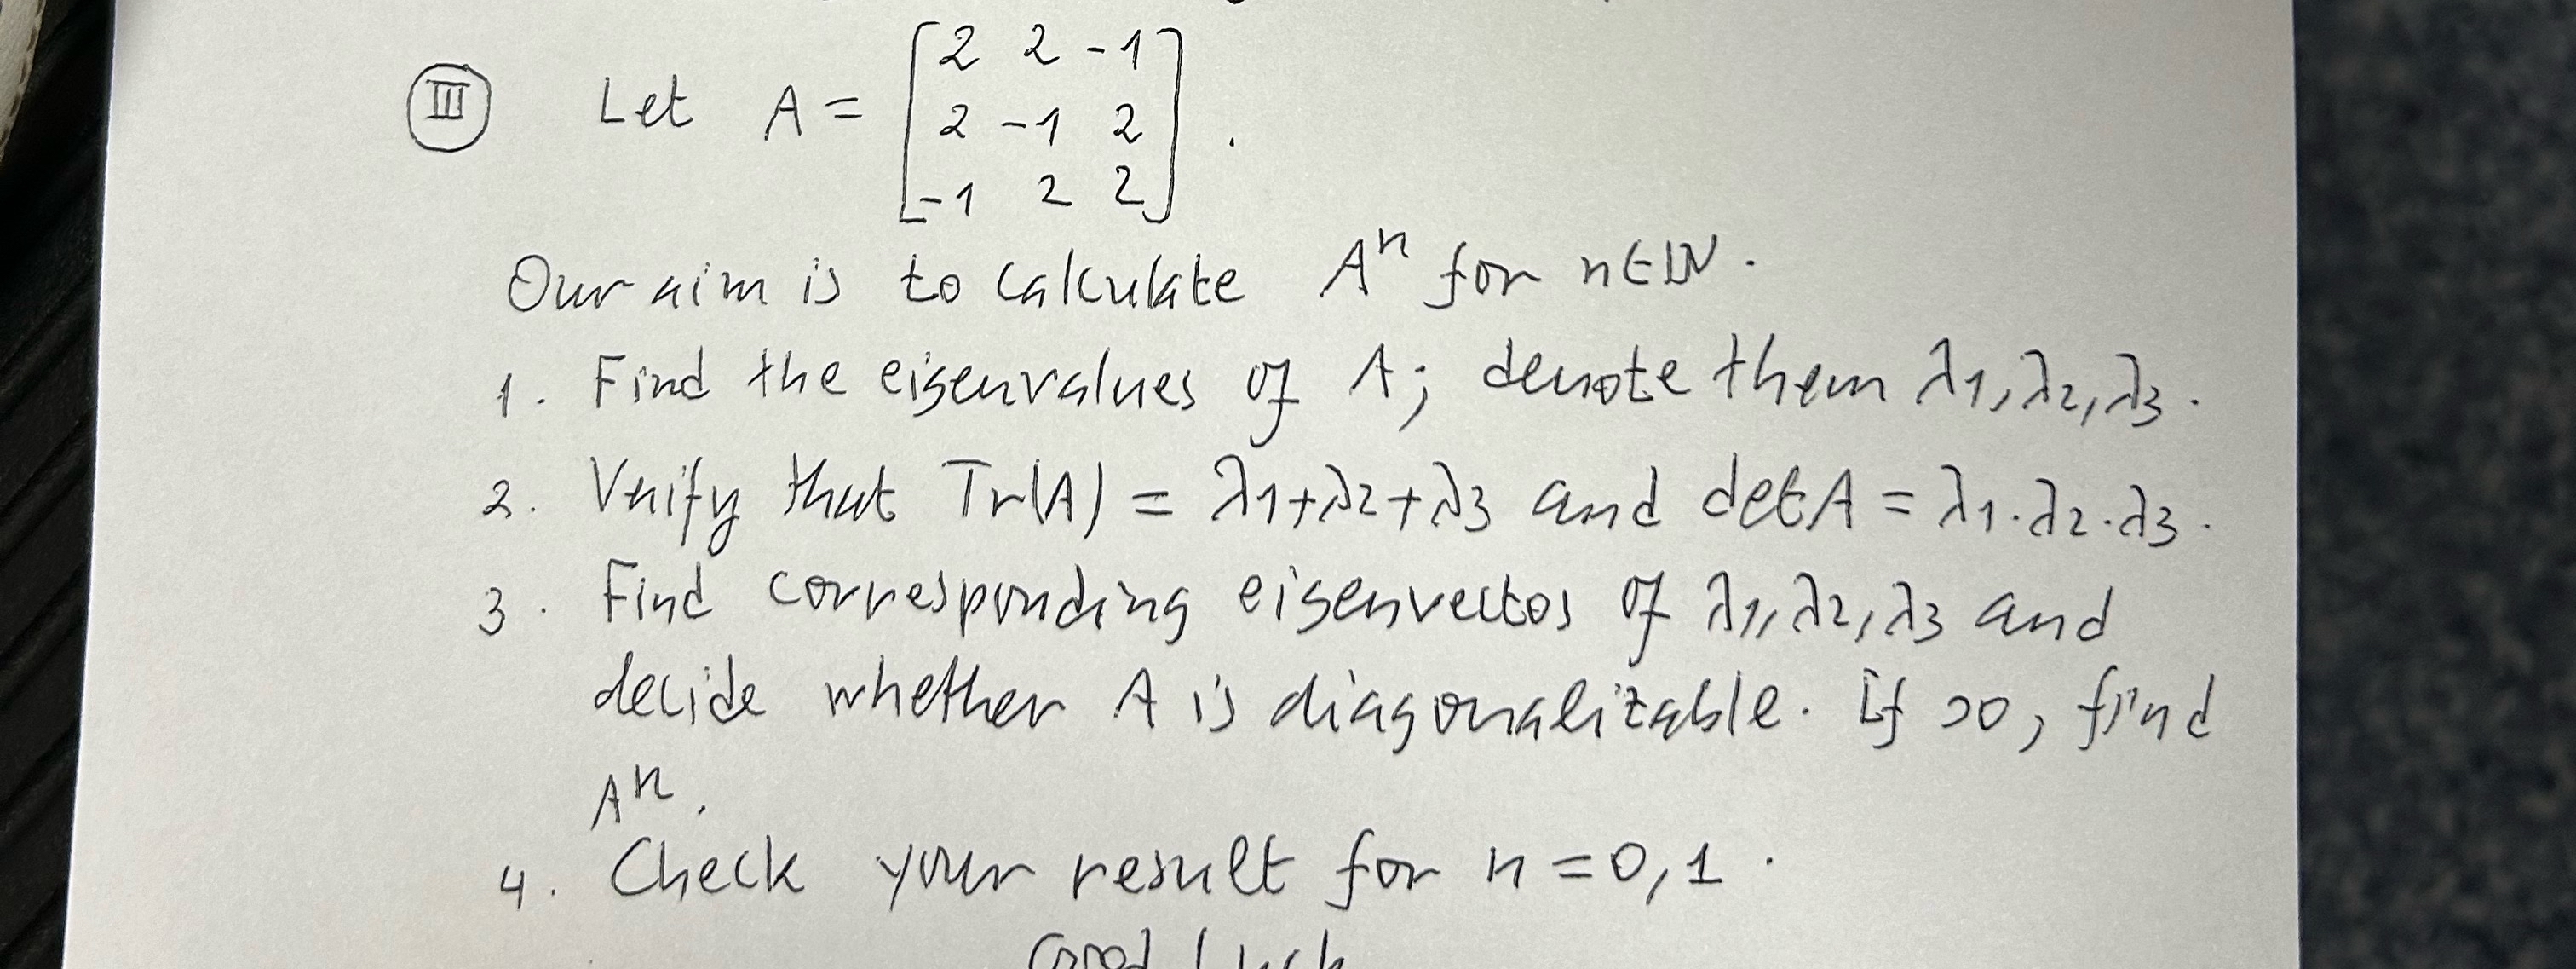 III Let A = [2 2 -1
2 -1 2
-1 2 2].
Our aim is to calculate Aⁿ for n∈ℕ.
1. Find the eigenvalues of A; denote them λ1, λ2, λ3.
2. Verify that Tr(A) = λ1+λ2+λ3 and det A = λ1·λ2·λ3.
3. Find corresponding eigenvectos of λ1, λ2, λ3 and
decide whether A is diagonalizable. If so, find
Aⁿ.
4. Check your result for n = 0, 1.
Good Luck